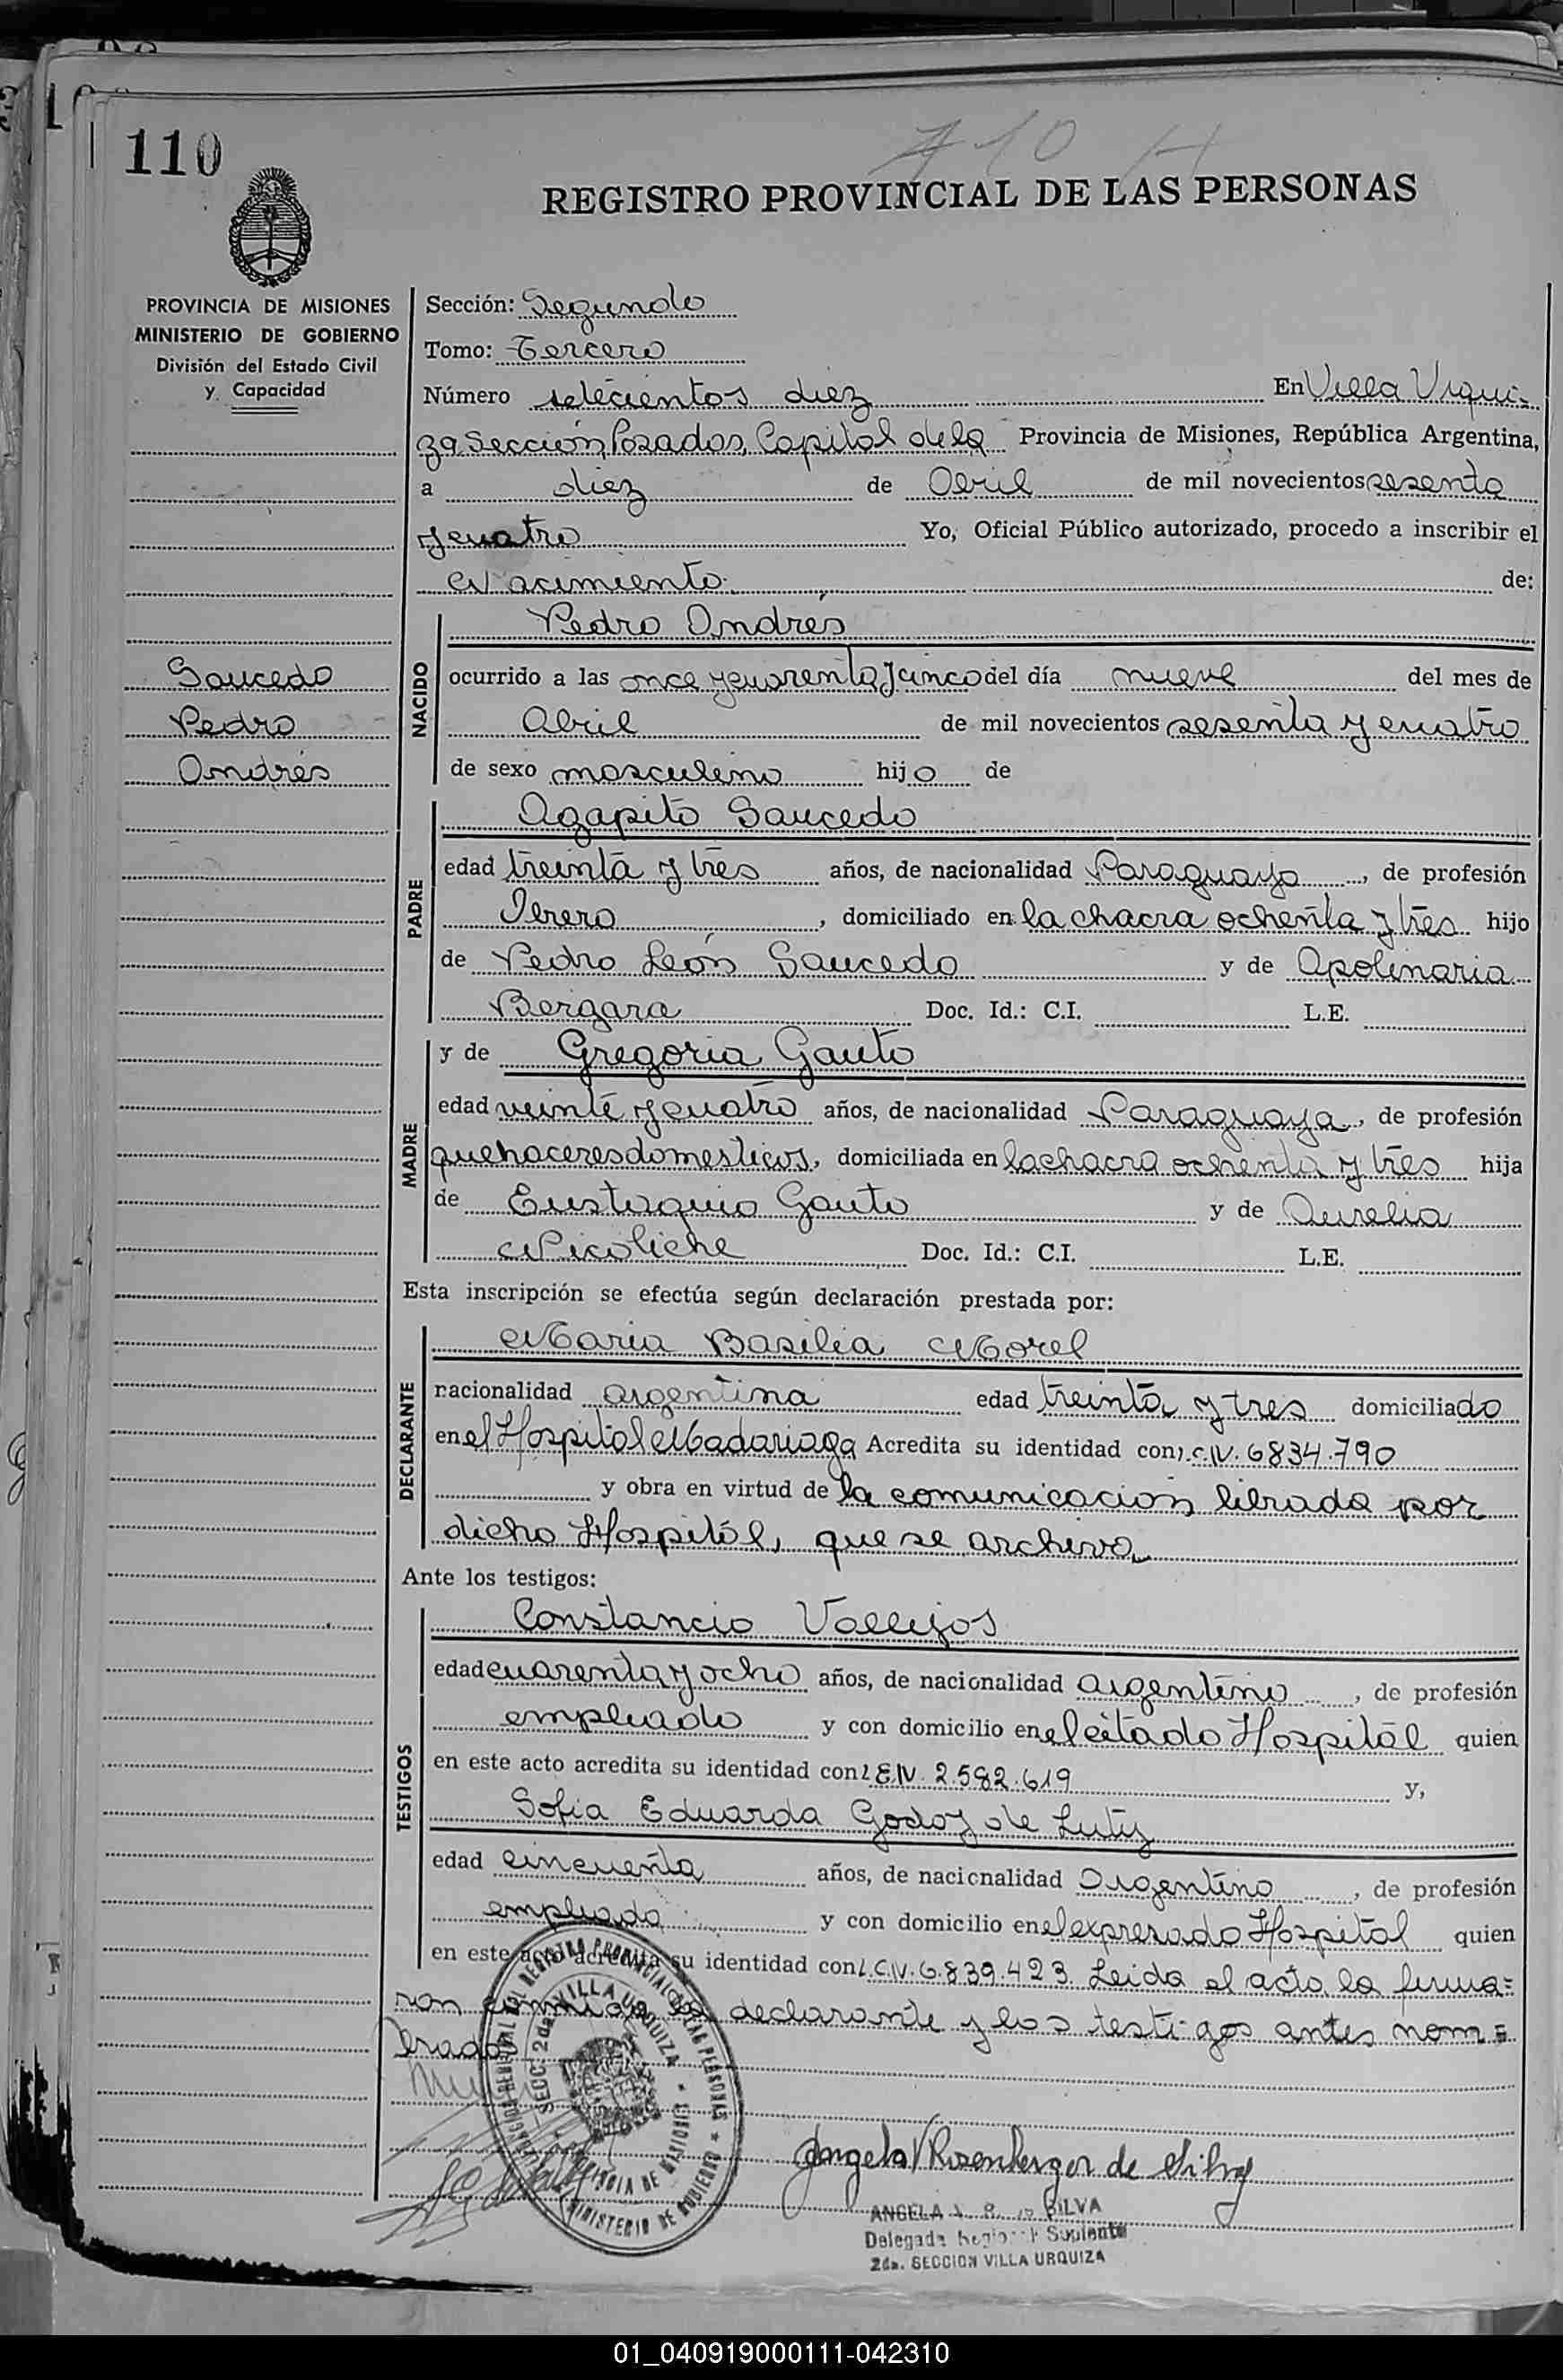 110
710 H
REGISTRO PROVINCIAL DE LAS PERSONAS
PROVINCIA DE MISIONES
MINISTERIO DE GOBIERNO
División del Estado Civil
y Capacidad
Saucedo
Pedro
Andrés
Sección: Segunda
Tomo: Tercero
Número setecientos diez En Villa Urqui-
za Sección, Posadas, Capital de la Provincia de Misiones, República Argentina,
a diez de Abril de mil novecientos sesenta
y cuatro Yo, Oficial Público autorizado, procedo a inscribir el
Nacimiento de:
NACIDO
Pedro Andrés
ocurrido a las once y cuarenta y cinco del día nueve del mes de
Abril de mil novecientos sesenta y cuatro
de sexo masculino hijo de
PADRE
Agapito Saucedo
edad treinta y tres años, de nacionalidad Paraguaya, de profesión
Obrero, domiciliado en la chacra ochenta y tres hijo
de Pedro León Saucedo y de Apolinaria
Bergara Doc. Id.: C.I. L.E.
MADRE
y de Gregoria Gauto
edad veinte y cuatro años, de nacionalidad Paraguaya, de profesión
quehaceres domesticos, domiciliada en la chacra ochenta y tres hija
de Eustaquio Gauto y de Aurelia
Nicoliche Doc. Id.: C.I. L.E.
Esta inscripción se efectúa según declaración prestada por:
DECLARANTE
Maria Basilia Morel
nacionalidad argentina edad treinta y tres domiciliado
en el Hospital Madariaga Acredita su identidad con L.C.N. 6834.790
y obra en virtud de la comunicación librada por
dicho Hospital, que se archiva
Ante los testigos:
TESTIGOS
Constancio Vallejos
edad cuarenta y ocho años, de nacionalidad argentino, de profesión
empleado y con domicilio en el citado Hospital quien
en este acto acredita su identidad con L.E.N. 2.582.619 y,
Sofia Eduarda Godoy de Luty
edad cincuenta años, de nacionalidad Argentina, de profesión
empleada y con domicilio en el expresado Hospital quien
en este acto acredita su identidad con L.C.N. 6.839.423 Leida el acta la firma=
ron conmigo la declarante y los testigos antes nom=
brados
DEL REGISTRO PROVINCIAL DE LAS PERSONAS
SECC. 2da VILLA URQUIZA
PROVINCIA DE MISIONES
MINISTERIO DE GOBIERNO
Angela V Rosenberger de Silva
ANGELA V. R. DE SILVA
Delegada Regional Suplente
2da. SECCION VILLA URQUIZA
01_040919000111-042310